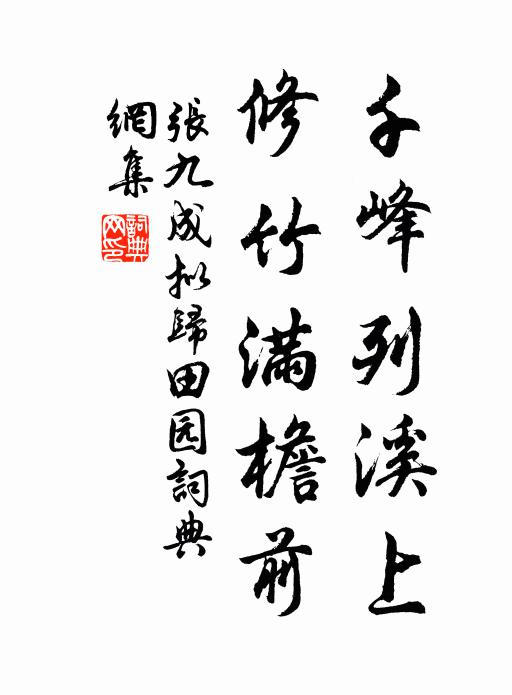 千峰列溪上
修竹满檐前
張九成拟歸田园詞典
網集
詞典
网印